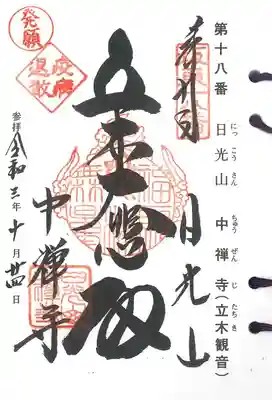 第十八番 日光山 中禅寺(立木観音)
にっこうさん ちゅうぜんじ たちき
奉拝
日光山
立木大悲殿
中禅寺
参拝 令和三年十月廿四日
発願
疫病退散